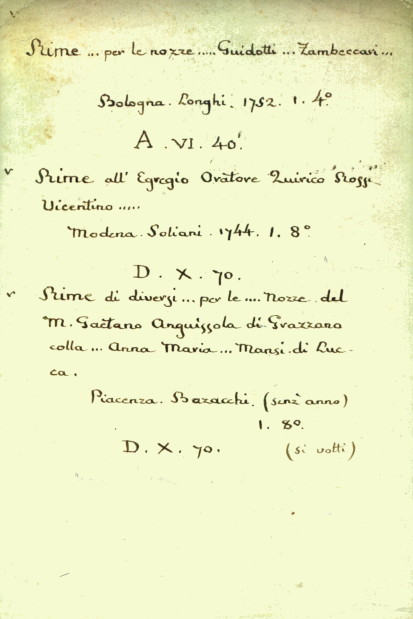 Rime ... per le nozze ..... Guidotti ... Zambeccari ...
Bologna. Longhi. 1752. 1. 4º
A. VI. 40.
v Rime all' Egregio Oratore Quirico Rossi
Vicentino .....
Modena. Soliani. 1744. 1. 8º
D. X. 70.
v Rime di diversi ... per le .... Nozze del
M. Gaetano Anguissola di Grazzano
colla ... Anna Maria ... Mansi di Luc-
ca.
Piacenza. Bazacchi. (senz' anno)
1. 8º.
D. X. 70. (si volti)